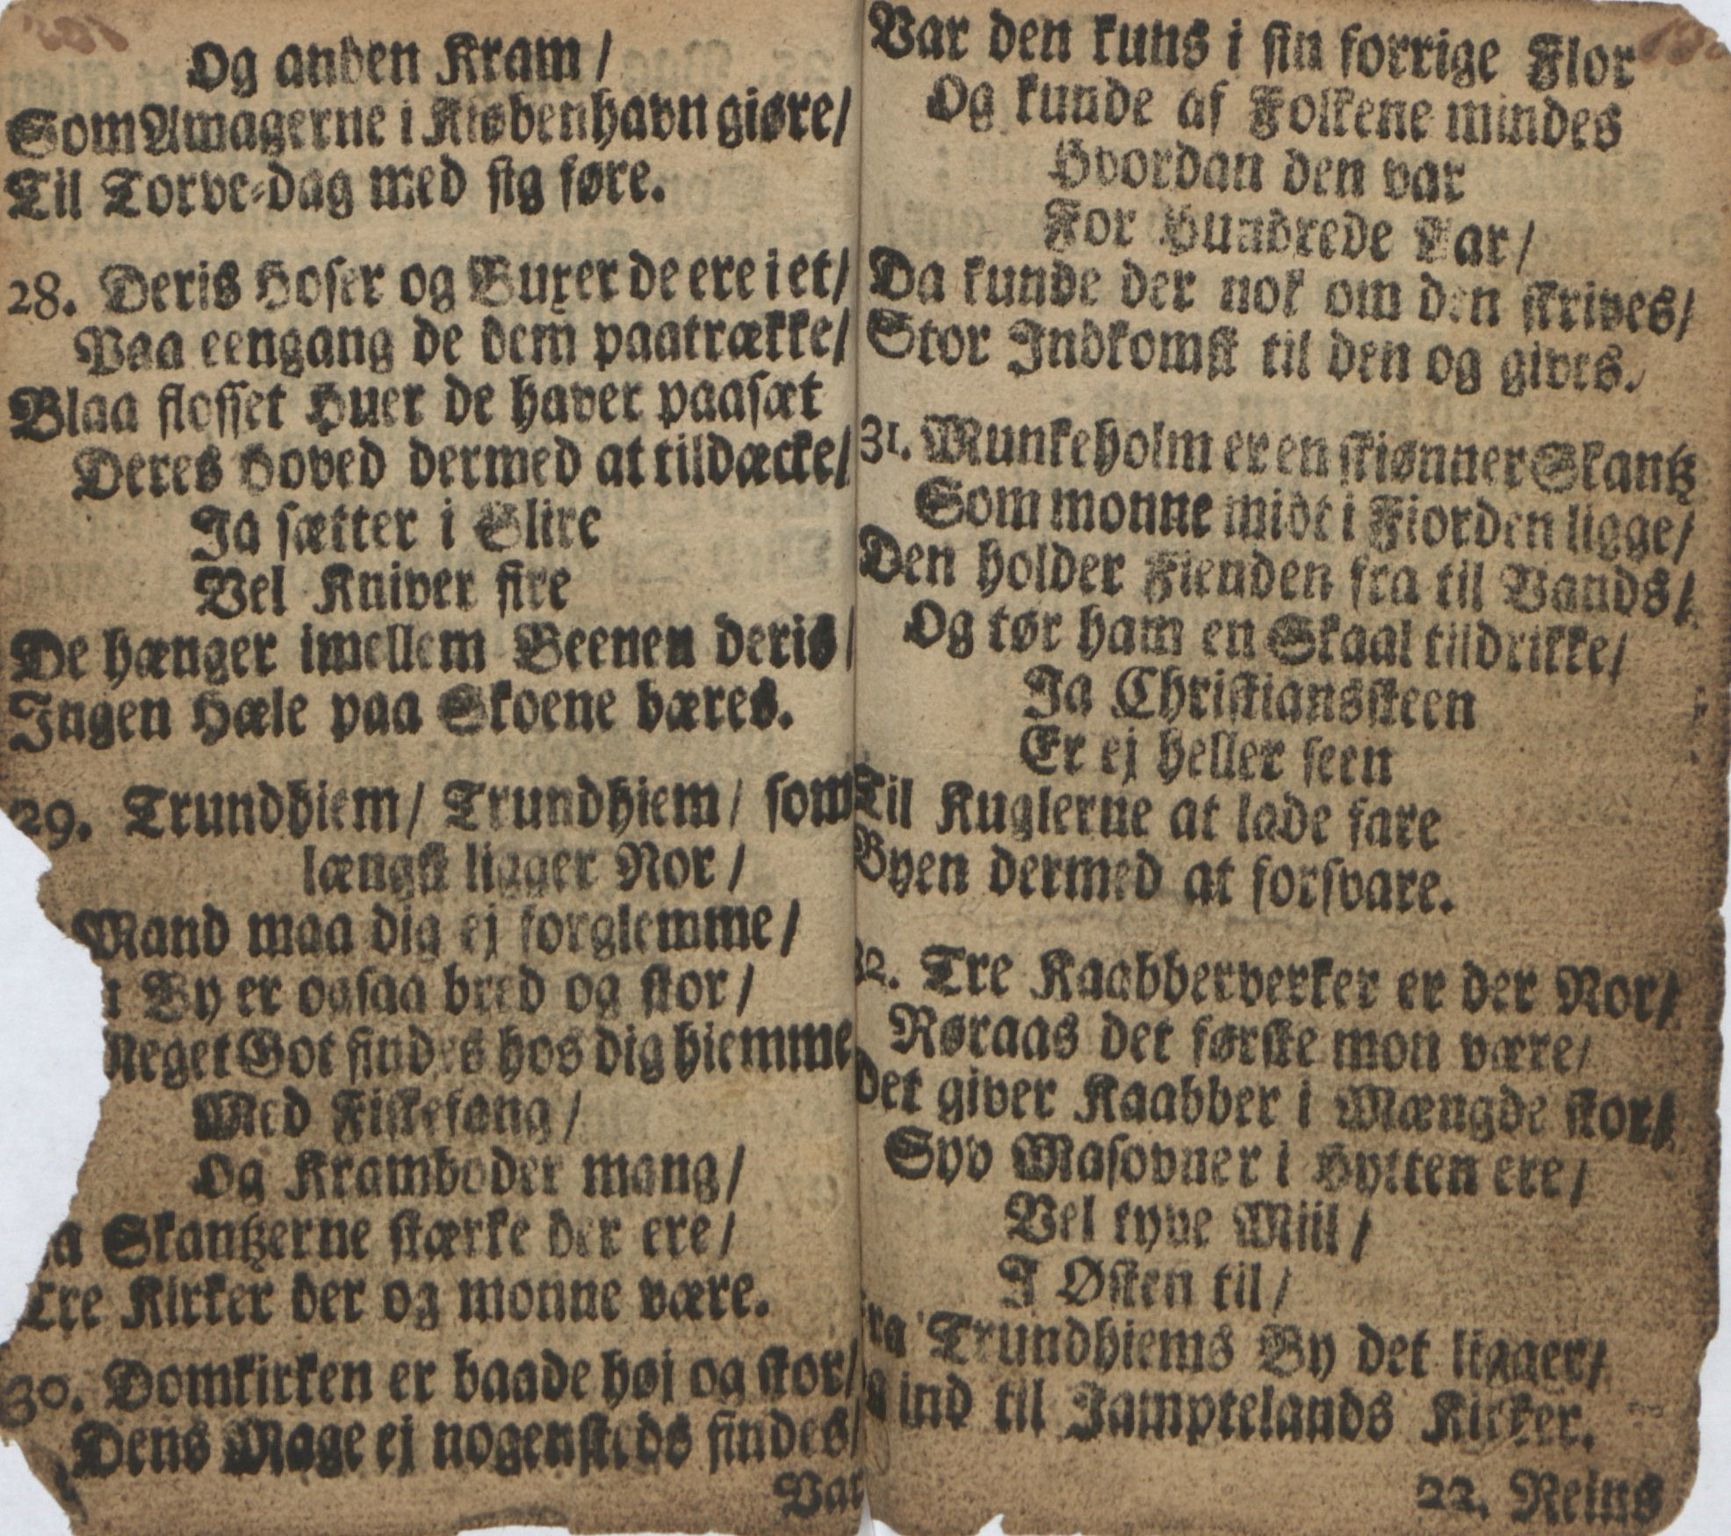 Og anden Kram/
Som Amagerne i Kiøbenhavn giøre/
Til Torve-dag med sig føre.
28. Deris Hoser og Buxer de ere i et/
Paa eengang de dem paatrække/
Blaa flosset Huer de haver paasæt
Deres Hoved dermed at tildæcke/
Ja sætter i Slire
Vel Kniver fire
De hænger imellem Beenen deris/
Ingen Hæle paa Skoene bæres.
29. Trundhiem/ Trundhiem/ som
længst ligger Nor/
Mand maa dig ej forglemme/
By er ogsaa bred og stor/
Meget Got findes hos dig hiemme
Med Fiskefang/
Og Kramboder mang/
Skantzerne stærke der ere/
Tre Kirker der og monne være.
30. Domkirken er baade høj og stor/
Dens Mage ej nogensteds findes/
Var
Var den kuns i sin forrige Flor
Og kunde af Folkene mindes
Hvordan den var
For Hundrede Aar/
Da kunde der nok om den skrives/
Stor Indkomst til den og gives.
31. Munkeholm er en skiønner Skantz
Som monne midt i Fiorden ligge/
Den holder Fienden fra til Vands/
Og tør ham en Skaal tildrikke/
Ja Christianssteen
Er ej heller seen
Til Kuglerne at lade fare
Byen dermed at forsvare.
32. Tre Kaabberverker er der Nor/
Røraas det første mon være/
Det giver Kaabber i Mængde stor/
Syv Masovner i Hytten ere/
Vel tyve Miil/
I Østen til/
Fra Trundhiems By det ligger/
ind til Jamptelands Kirker.
22. Reins